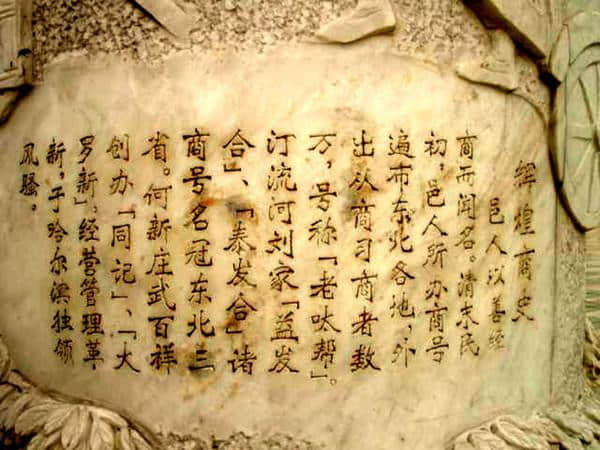 辉煌商史
邑人以善经
商而闻名。清末民
初，邑人所办商号
遍布东北各地，外
出从商习商者数
万，号称「老呔帮」。
汀流河刘家「益发
合」、「泰发合」诸
商号名冠东北三
省。何新庄武百祥
创办「同记」、「大
罗新」经营管理革
新，于哈尔滨独领
风骚。